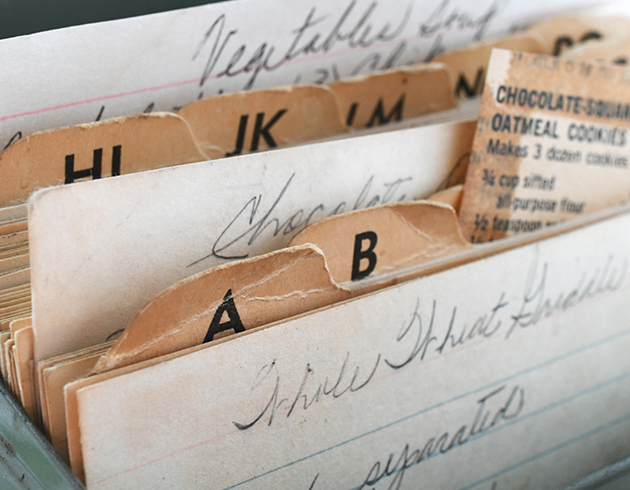 Vegetables Soup
HI
JK
LM
N
CHOCOLATE-SQUAR
OATMEAL COOKIES
Makes 3 dozen cookies
¾ cup sifted
all-purpose flour
½ teaspoon
Chocolate
B
A
Whole Wheat Griddle
separated